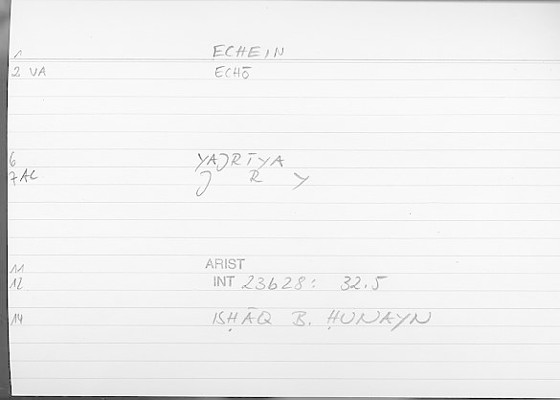 1 ECHEIN
2 VA ECHŌ
6 YAJRĪYA
7 AL J R Y
11 ARIST
12 INT 23628: 32.5
14 ISḤĀQ B. ḤUNAYN